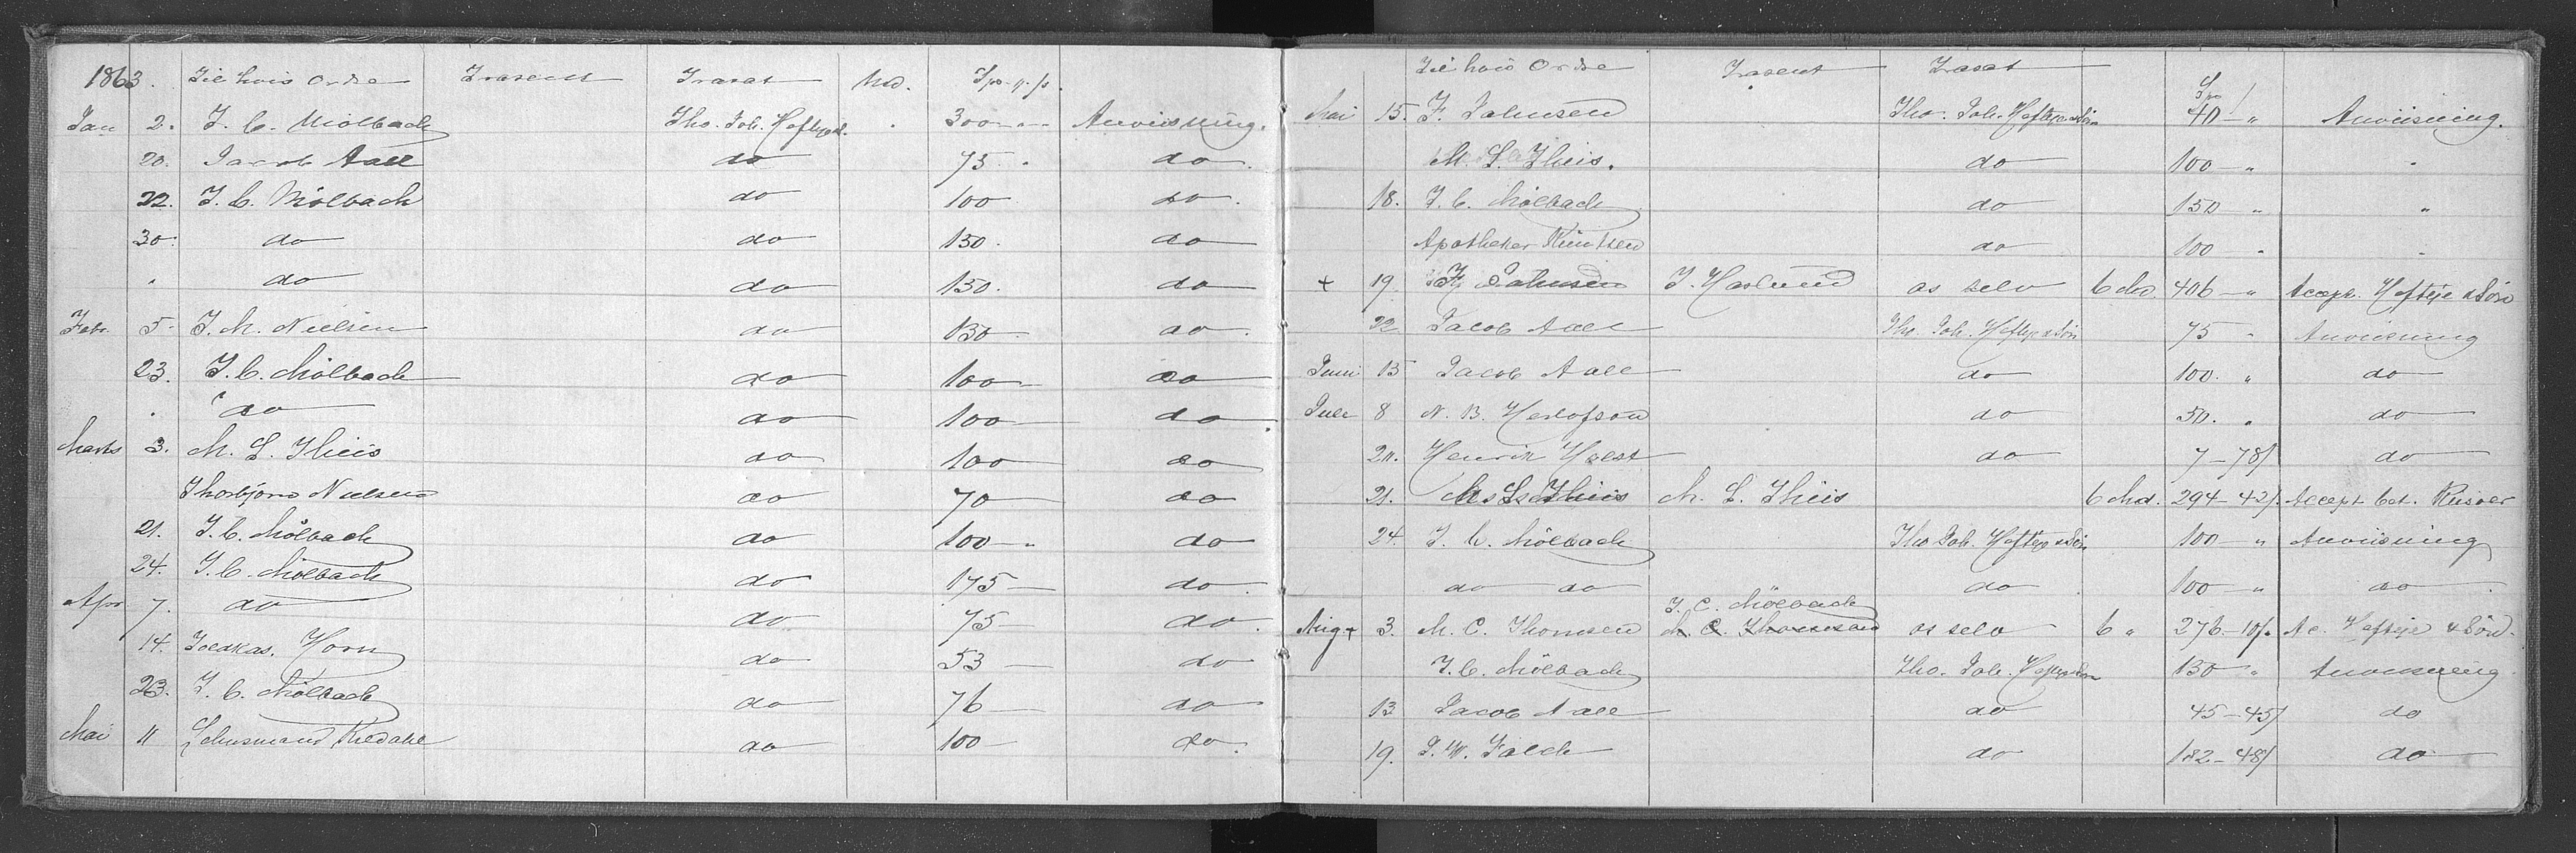 1863. Til hvis Ordre Trasent Trasat Md. Spd. ß.
Jan 2. J. C. Mölbach Tho. Joh. Heftye 300 Anviisning.
20. Jacob Aall do 75 do
22. J. C. Mölbach do 100 do
30. do do 150. do
" do do 150. do
Febr. 5 J. M. Nielsen do 130 do.
23. J. C. Mölbach do 100 do
" do do 100 do
Marts 3. M. L. Thiis do 100 do
Thorbjørn Nielsen do 70 do
21. J. C. Mölbach do 100 " do
24. J. C. Mölbach do 175 do
Apr 7. do do 75 do
14. Toldkas. Horn do 53 do
23. J. C. Mölbach do 76 do
Mai 11 Lehnsmand do 100 do.
Til hvis Ordre Trasent Trasat
Mai 15. F. Salmsen Tho. Joh. Heftye & Søn Spd 40 " Anviisning.
M. L. Thiis. do 100 " "
18. J. C. Mölbach do 150 " "
Apotheker Knutsen do 100 " "
+ 19. Salmsen J. Haslund os selv 6 Md 406 " Accept. Heftye & Søn
22 Jacob Aall Tho. Joh. Heftye & Søn 75 " Anviisning
Juni 15 Jacob Aall do 100. " do
Juli 8 N. B. Herlofson do 50. " do
20. Henrik Holst do 7-78/ do
21. M. L. Thiis M. L. Thiis 6 Md. 294-42/. Accept
24. J. C. Mölbach Tho Joh. Heftye & Søn 100 " Anviisning
do do do 100 " do
J. C. Mölbach
Aug + 3. M. C. Thomsen M. C. Thomsen os selv 6 " 276-10/. Ac. Heftye & Søn.
J. C. Mölbach Tho. Joh. Heftye & Søn 130 " Anviisning
13 Jacob Aall do 45-45/ do
19. Falch do 182-48/ do